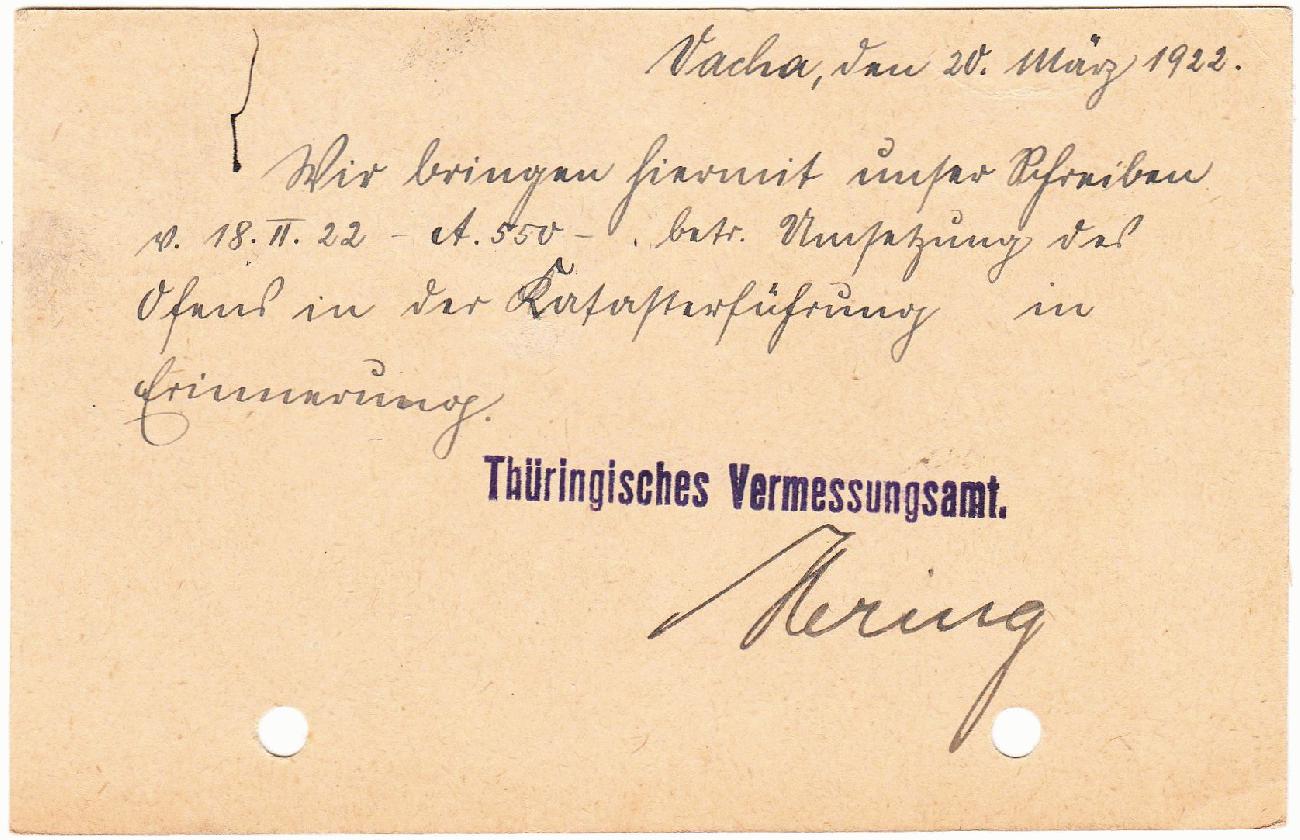 Vacha, den 20. März 1922.
Wir bringen hiermit unser Schreiben
v. 18. II. 22 - A. 550 - . betr. Umsetzung des
Ofens in der Katasterführung in
Erinnerung.
Thüringisches Vermessungsamt.